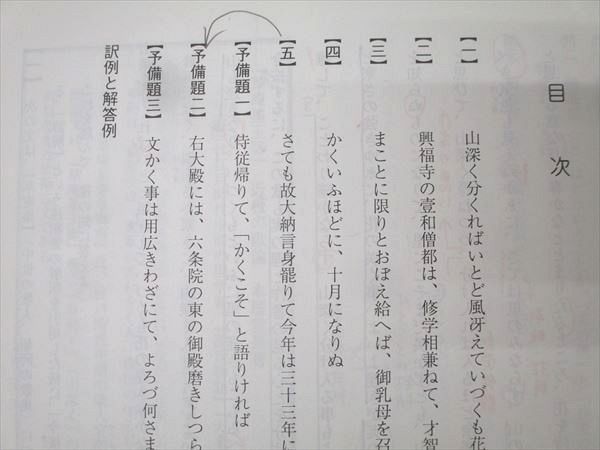 目次
【一】 山深く分くればいとど風冴えていづくも花
【二】 興福寺の壹和僧都は、修学相兼ねて、才智
【三】 まことに限りとおぼえ給へば、御乳母を召
【四】 かくいふほどに、十月になりぬ
【五】 さても故大納言身罷りて今年は三十三年に
【予備題一】 侍従帰りて、「かくこそ」と語りければ
【予備題二】 右大殿には、六条院の東の御殿磨きしつら
【予備題三】 文かく事は用広きわざにて、よろづ何さま
訳例と解答例